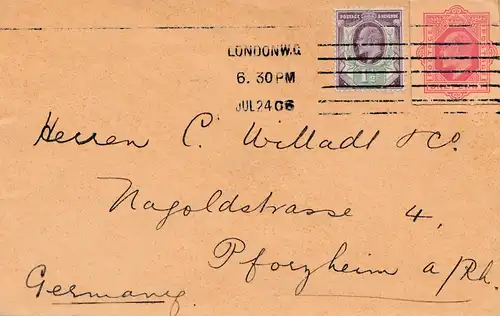 POSTAGE & REVENUE
1½D
LONDON W.C
6.30PM
JUL 24 06
Herren C. Willadt & Co.
Nagoldstrasse 4,
Pforzheim a/Rh.
Germany.